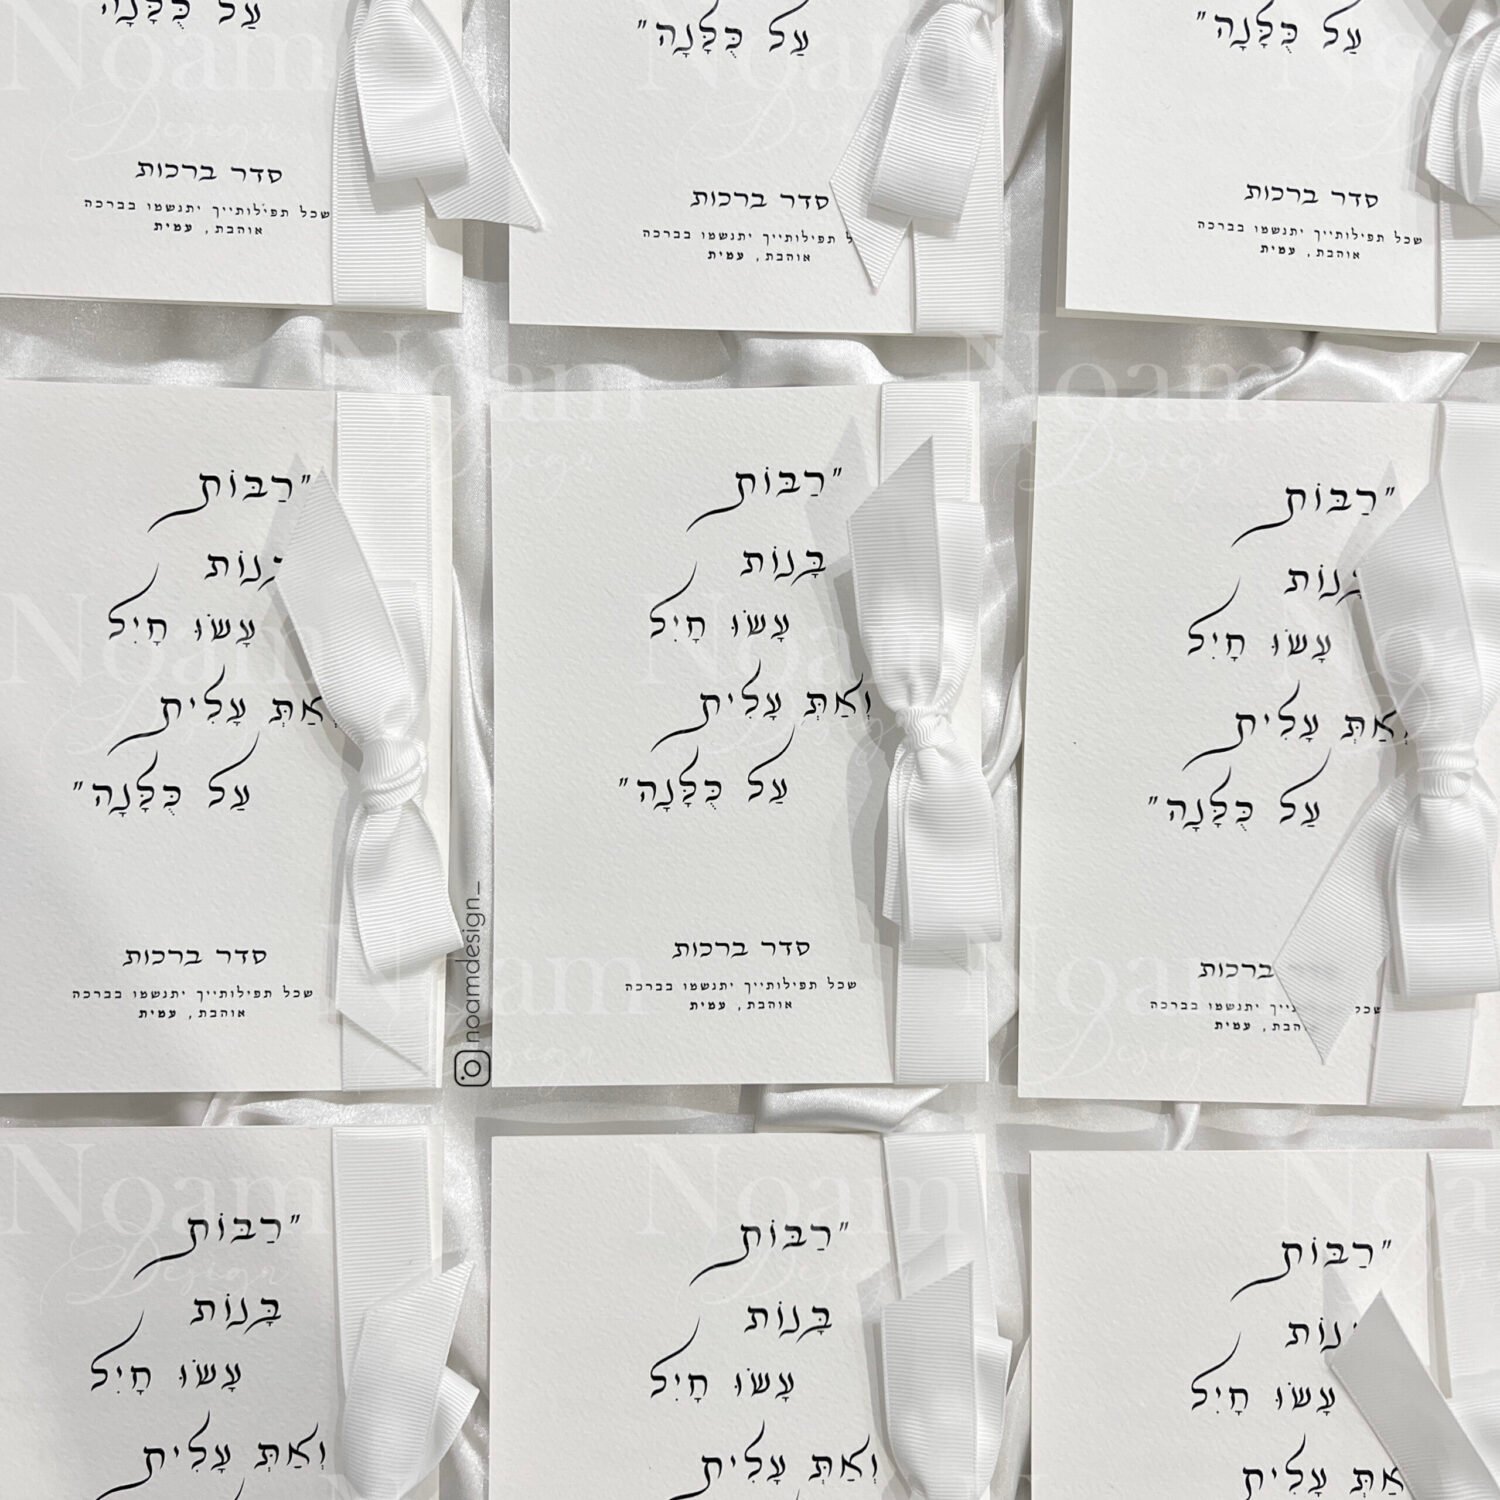 עַל כֻּלָּנָה"
סדר ברכות
שכל תפילותייך יתנשמו בברכה
אוהבת, עמית
עַל כֻּלָּנָה"
סדר ברכות
תפילותייך יתנשמו בברכה
אוהבת, עמית
עַל כֻּלָּנָה"
סדר ברכות
שכל תפילותייך יתנשמו בברכה
אוהבת, עמית
"רַבּוֹת
עָשׂוּ חָיִל
וְאַתְּ עָלִית
עַל כֻּלָּנָה"
סדר ברכות
שכל תפילותייך יתנשמו בברכה
אוהבת, עמית
"רַבּוֹת
בָּנוֹת
עָשׂוּ חָיִל
וְאַתְּ עָלִית
עַל כֻּלָּנָה"
סדר ברכות
שכל תפילותייך יתנשמו בברכה
אוהבת, עמית
"רַבּוֹת
עָשׂוּ חָיִל
וְאַתְּ עָלִית
עַל כֻּלָּנָה"
ברכות
שכל יתנשמו בברכה
עמית
"רַבּוֹת
בָּנוֹת
עָשׂוּ חָיִל
וְאַתְּ עָלִית
"רַבּוֹת
בָּנוֹת
עָשׂוּ חָיִל
וְאַתְּ עָלִית
"רַבּוֹת
עָשׂוּ חָיִל
עָלִית
noamdesign_
Noam
Design